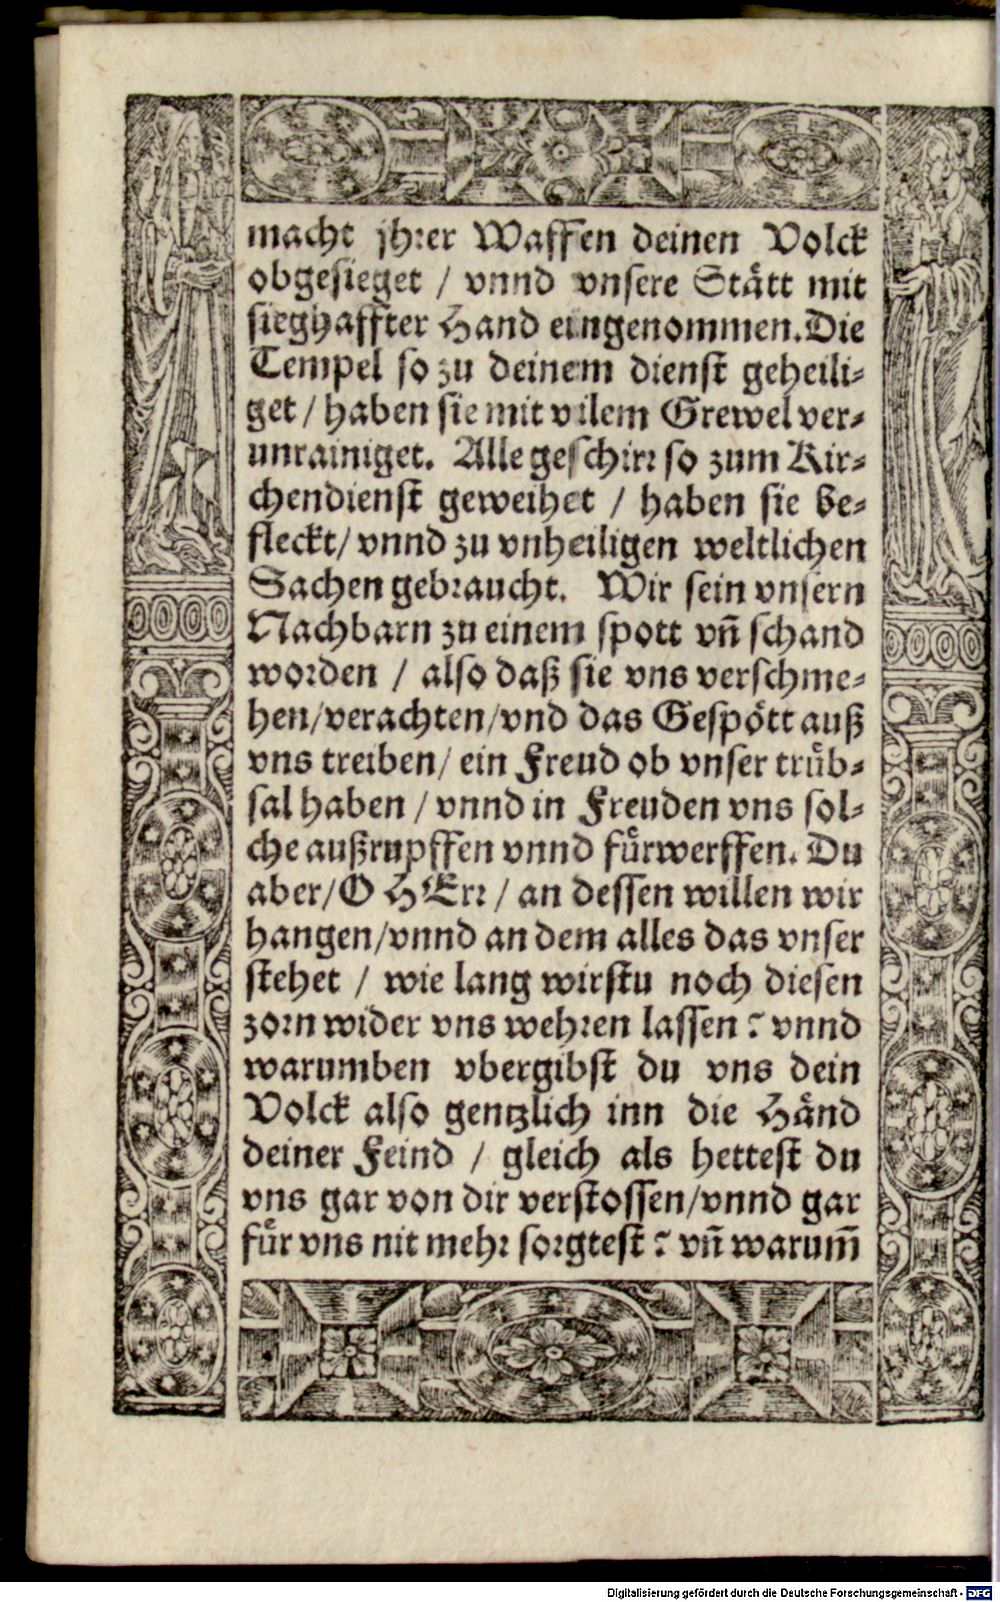 macht jhrer Waffen deinen Volck
obgesieget / vnnd vnsere Stätt mit
sieghaffter Hand eingenommen. Die
Tempel so zu deinem dienst geheili-
get / haben sie mit vilem Grewel ver-
unrainiget. Alle geschirr so zum Kir-
chendienst geweihet / haben sie be-
fleckt / vnnd zu vnheiligen weltlichen
Sachen gebraucht. Wir sein vnsern
Nachbarn zu einem spott vñ schand
worden / also daß sie vns verschme-
hen / verachten / vnd das Gespött auß
vns treiben / ein Freud ob vnser trüb-
sal haben / vnnd in Freuden vns sol-
che außrupffen vnnd fürwerffen. Du
aber / O HErr / an dessen willen wir
hangen / vnnd an dem alles das vnser
stehet / wie lang wirstu noch diesen
zorn wider vns wehren lassen? vnnd
warumben vbergibst du vns dein
Volck also gentzlich inn die Händ
deiner Feind / gleich als hettest du
vns gar von dir verstossen / vnnd gar
für vns nit mehr sorgtest? vñ warum̃
Digitalisierung gefördert durch die Deutsche Forschungsgemeinschaft - DFG